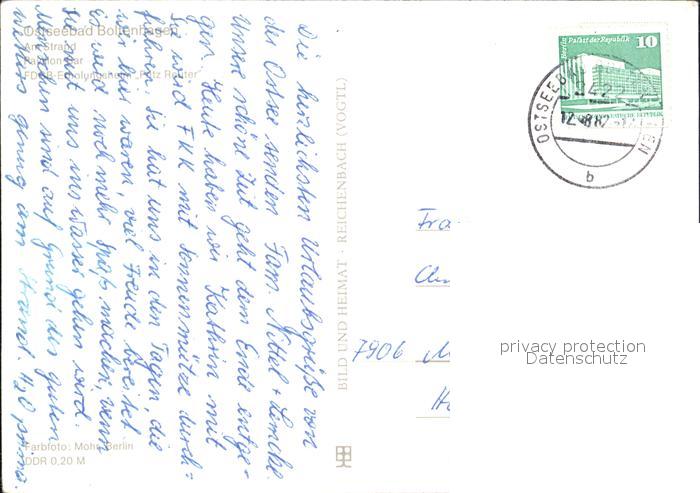 Ostseebad Boltenhagen
Am Strand
Pavillonbar
FDGB-Erholungsheim „Fritz Reuter“
Die herzlichsten Urlaubsgrüße von
der Ostsee senden Fam. Nittel + Lemcke.
Unsere schöne Zeit geht dem Ende entge-
gen. Heute haben wir Kathrin mit
wird FKK mit Sonnenmütze durch=
führen. Sie hat uns in den Tagen, die
wir hier waren, viel Freude bereitet
es wird noch mehr Spaß machen, wenn
sie mit uns ins Wasser gehen wird.
Menschen sind auf Grund des guten
Wetters genug am Strand. H2O prima.
Farbfoto: Mohr, Berlin
DDR 0,20 M
BILD UND HEIMAT · REICHENBACH (VOGTL)
Berlin, Palast der Republik
10
DEUTSCHE DEMOKRATISCHE REPUBLIK
OSTSEEB
2422
12.-8.82
b
Fra
7906
privacy protection
Datenschutz